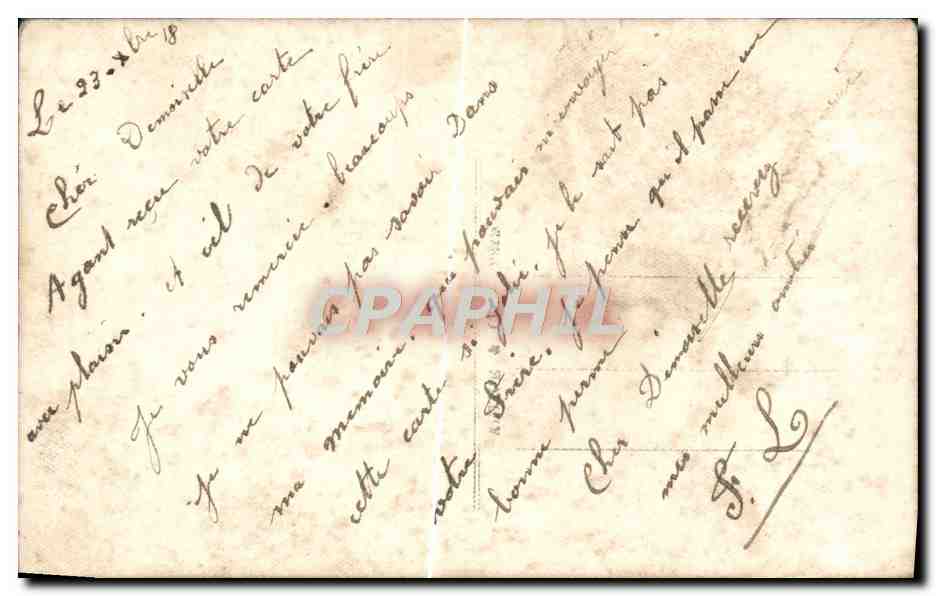 Le 23. Xbre 18
Chér Demoiselle
Ayant reçu votre carte
avec plaisir. et cel de votre frère
Je vous remercie beaucoups
Je ne pouvais pas savoir Dans
ma memoire, qui pouvais m'envoyer
cette carte si Je le sait pas
votre Frère. Je pense qu'il passe une
bonne perme.
Cher Dimoiselle recevez
mes meilleurs amitiés
F. L
CPAPHIL